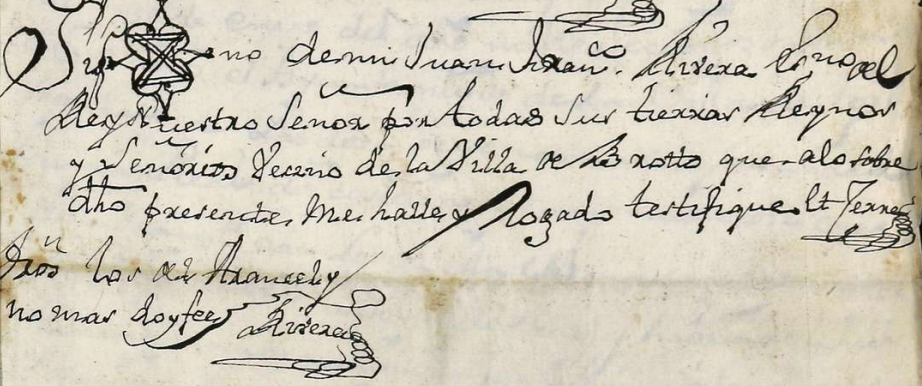 Sig no de mi Juan Fran.co Rivera Esno del
Rey Nuestro Señor por todas sus tierras Reynos
y Señorios Vezino de la Villa de Brotto que a lo sobre
dho presente me halle y Rogado testifique et Zerre
Dros los del Arancel y
no mas doy fee Rivera